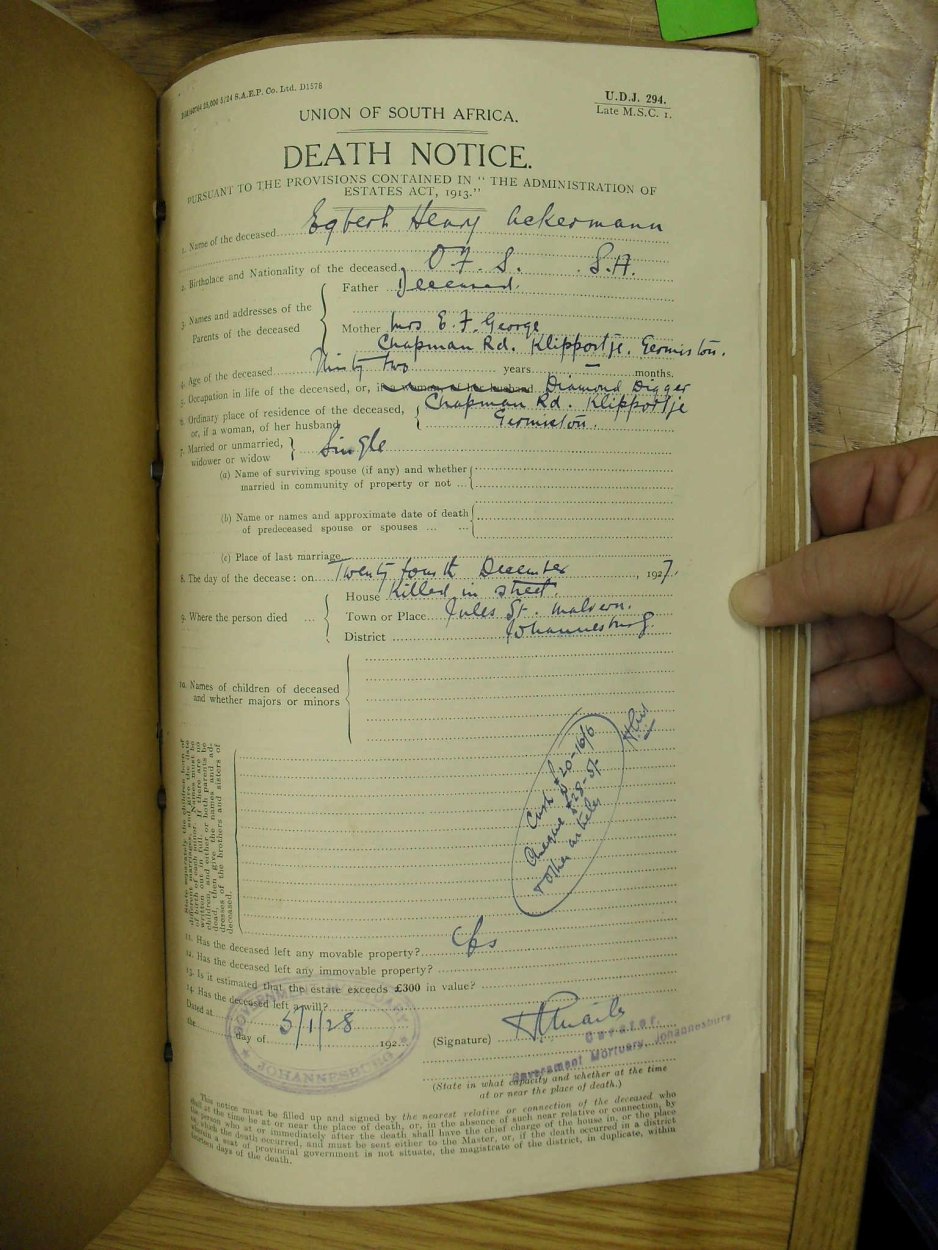 25,000 5/24 S.A.E.P. Co. Ltd. D1576
U.D.J. 294.
Late M.S.C. 1.
UNION OF SOUTH AFRICA.
DEATH NOTICE.
PURSUANT TO THE PROVISIONS CONTAINED IN "THE ADMINISTRATION OF
ESTATES ACT, 1913."
1. Name of the deceased Egbert Henry Ackermann
2. Birthplace and Nationality of the deceased O.F.S. S.A.
3. Names and addresses of the Parents of the deceased
Father Deceased.
Mother Mrs E. F. George
Chapman Rd. Klipportje. Germiston.
4. Age of the deceased Thirty two years — months.
5. Occupation in life of the deceased, or, if a woman, of her husband Diamond Digger
6. Ordinary place of residence of the deceased, Chapman Rd. Klipportje
or, if a woman, of her husband Germiston.
7. Married or unmarried, widower or widow Single
(a) Name of surviving spouse (if any) and whether
married in community of property or not ...
(b) Name or names and approximate date of death
of predeceased spouse or spouses ... ...
(c) Place of last marriage
8. The day of the decease: on Twenty fourth December, 1927.
9. Where the person died ...
House Killed in street.
Town or Place Jules St. Malvern.
District Johannesburg.
10. Names of children of deceased
and whether majors or minors
State separately the children born of
different marriages, and give the date
of birth of each minor. Names must be
written out in full. If there are no
children, and either or both parents be
dead, then give the names and ad-
dresses of the brothers and sisters of
deceased.
Cash £20-16/6
Cheque £25-5/-
+ Other articles
11. Has the deceased left any movable property? Yes
12. Has the deceased left any immovable property?
13. Is it estimated that the estate exceeds £300 in value?
14. Has the deceased left a will?
Dated at
the 5/1/28 day of 192
GOVERNMENT MORTUARY
JOHANNESBURG
(Signature)
Caretaker.
Government Mortuary, Johannesburg
(State in what capacity and whether at the time
at or near the place of death.)
This notice must be filled up and signed by the nearest relative or connection of the deceased who
shall at the time be at or near the place of death, or, in the absence of such near relative or connection, by
the person who at or immediately after the death shall have the chief charge of the house in, or the place
at, which the death occurred, and must be sent either to the Master, or, if the death occurred in a district
wherein a seat of provincial government is not situate, the magistrate of the district, in duplicate, within
fourteen days of the death.